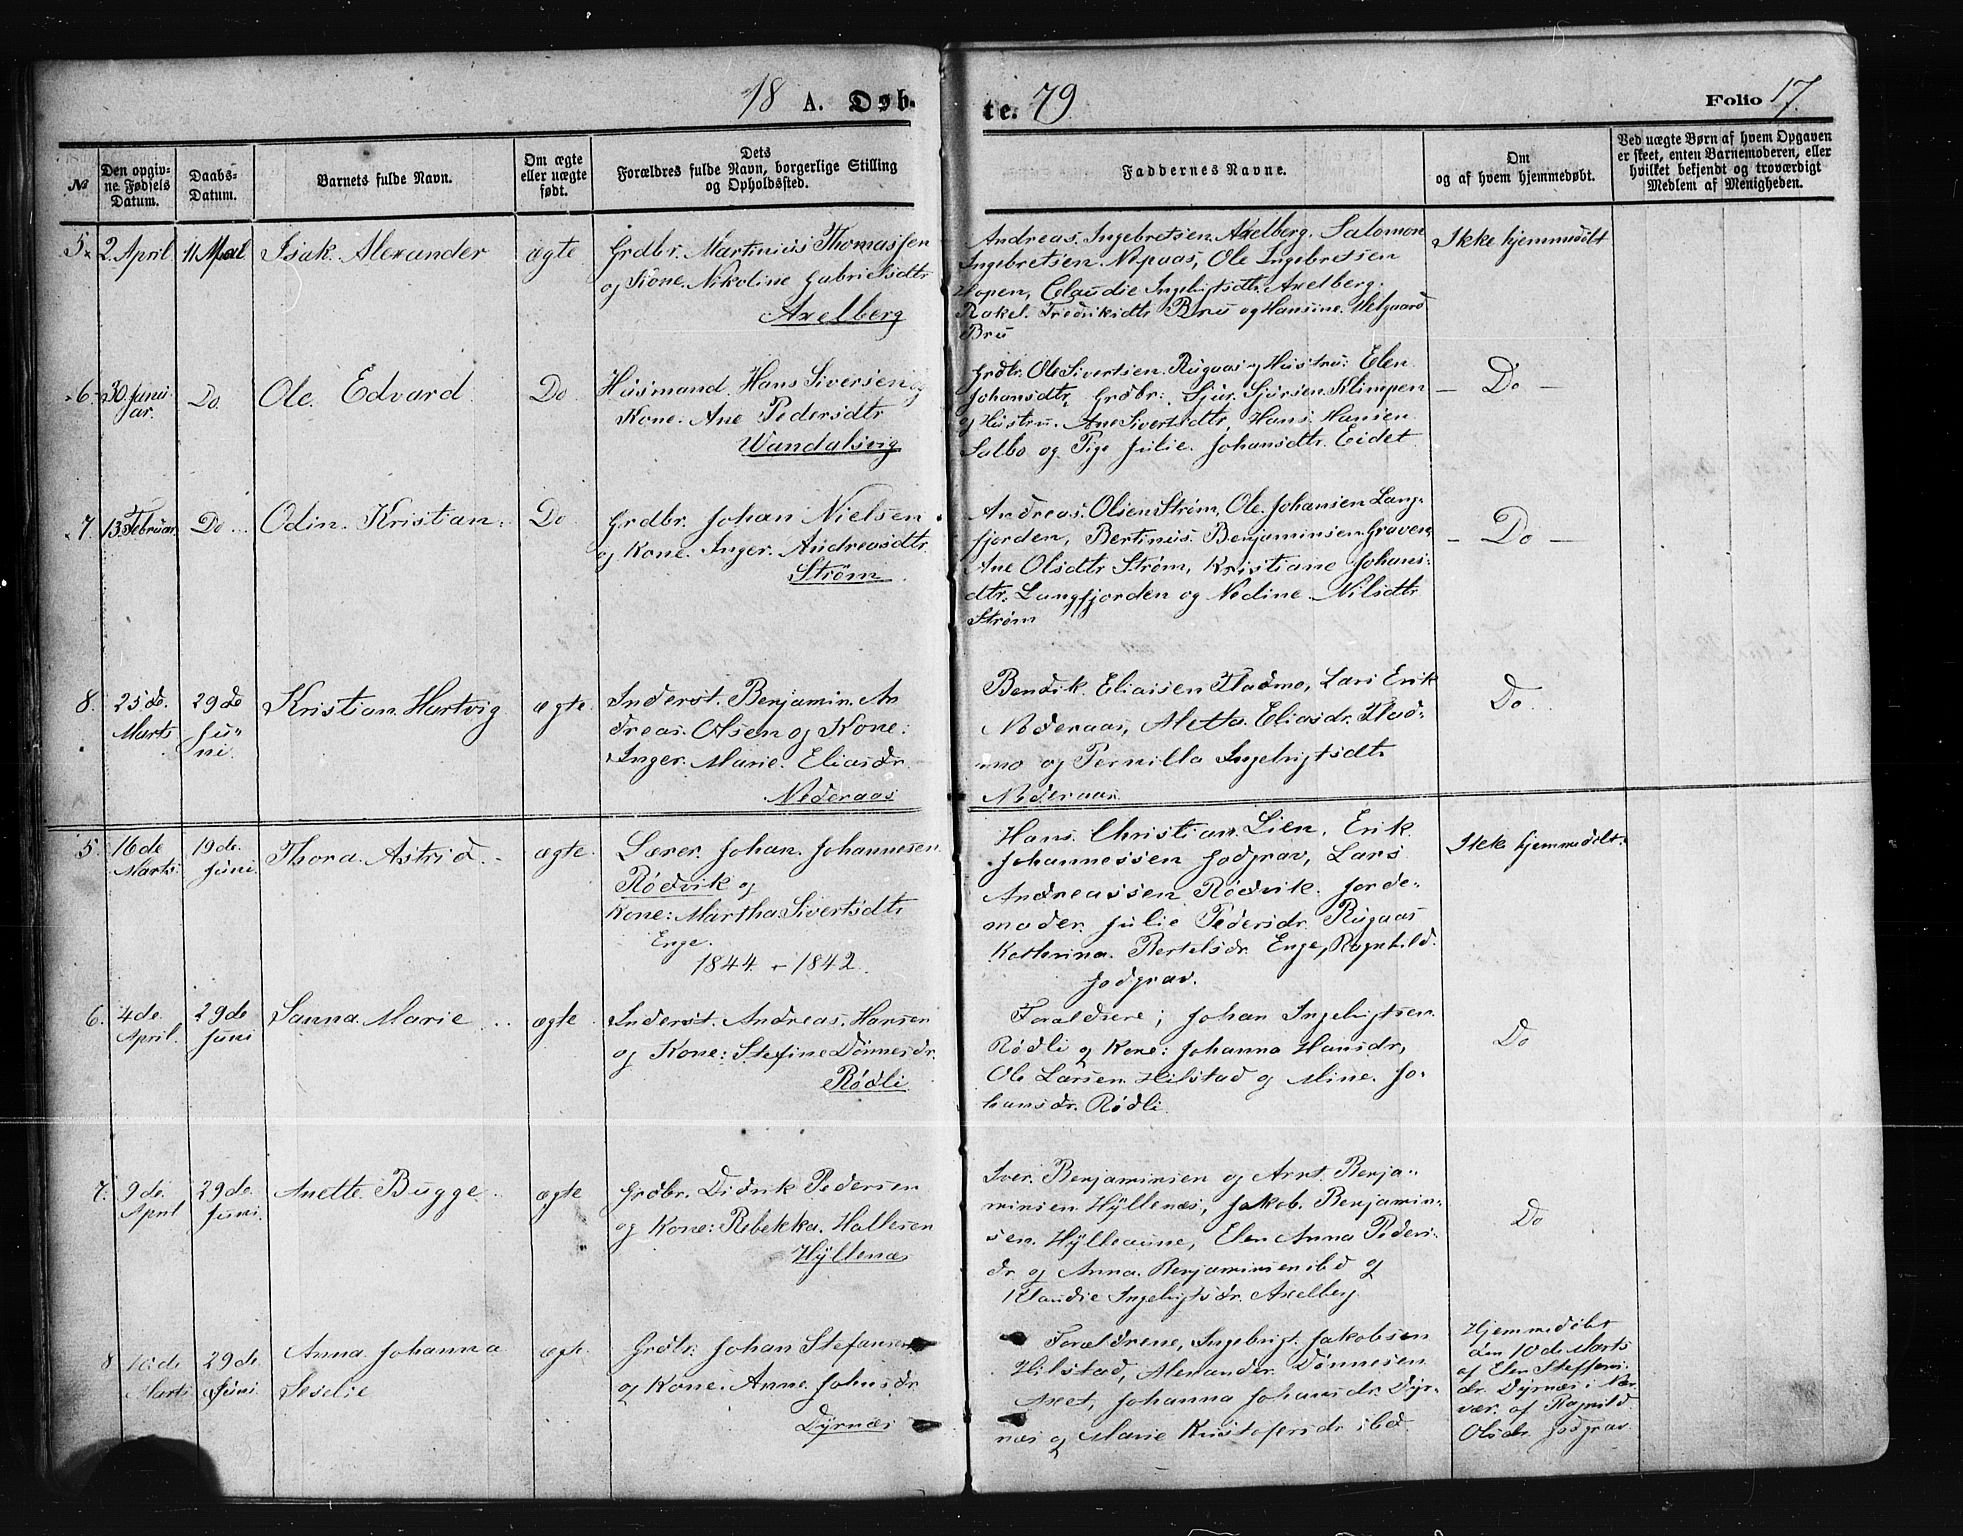 18 A. Døb-
te. 79.
Folio 17.
№
Den opgiv-
ne Fødsels
Datum.
Daabs-
Datum.
Barnets fulde Navn.
Om ægte
eller uægte
født.
Dets
Forældres fulde Navn, borgerlige Stilling
og Opholdssted.
Faddernes Navne.
Om
og af hvem hjemmedøbt.
Ved uægte Børn af hvem Opgaven
er skeet, enten Barnemoderen, eller
hvilket bekjendt og troværdigt
Medlem af Menigheden.
5. 2 April 11 Mai Isak Alexander ægte
Grdbr. Martinius Thomassen
og Kone Nikoline Gabrielsdtr
Axelberg
Andreas Ingebretsen Axelberg, Salomon
Ingebretsen Nepaas, Ole Ingebretsen
Hopen, Claudie Ingebrigtsdtr Axelberg
Rakel Fredriksdtr Bru og Hansine Helgaard
Bru
Ikke hjemmedøbt
6. 30 Janu-
ar. Do. Ole Edvard Do.
Husmand Hans Siversen og
Kone Ane Pedersdtr
Wandalsvig
Grdbr. Ole Sivertsen Rugaas og Hustru: Elen
Johansdtr, Grdbr: Sjur Sjursen Klimpen
og Hustru Ane Sivertsdtr, Hans Hansen
Salbo og Pige Julie Johansdtr Eidet
– Do –
7. 13 Februar Do Odin Kristian Do
Grdbr. Johan Nielsen
og Kone Inger Andreasdtr
Strøm
Andreas Olsen Strøm, Ole Johansen Lang-
fjorden, Bertinus Benjaminsen Graven,
Ane Olsdtr Strøm, Kristiane Johans-
dtr. Langfjorden og Nedine Nilsdtr
Strøm
– Do –
8. 25 de
Marts 29 de
Ju-
ni. Kristian Hartvig ægte
Inderst. Benjamin An
dreas Olsen og Kone:
Inger Marie Eliasdr
Nederaas
Bendik Eliasen Fladmo, Lars Erik
Nederaas, Aletta Eliasdr. Flad-
mo og Pernilla Ingebrigtsdtr
Nederaas
Do
5 16 de
Marts 19 de
Juni Thora Astrid ægte
Lærer Johan Johannesen
Rødvik og
Kone: Martha Sivertsdtr
Enge.
1844 – 1842.
Hans Christian Lien, Erik
Johannessen Jodgrav, Lars
Andreassen Rødvik. Jorde-
moder Julie Pedersdr. Rugaas
Katherina Bertelsdr. Enge, Ragnhild
Jodgrav.
Ikke hjemmedøbt.
6. 4 de
April 29 de
Juni Sanna Marie ægte
Inderst. Andreas Hansen
og Kone: Stefine Dønnesdr.
Rødli
Forældrene; Johan Ingebrigtsen
Rødli og Kone: Johanna Hansdr,
Ole Larsen Hilstad og Mine Jo-
hansdr. Rødli.
Do
7. 9 de
April 29 de
Juni Anette Bugge ægte
Grdbr. Didrik Pedersen
og Kone: Rebekka Hallesen
Hÿllenæs
Iver Benjaminsen og Arnt Benja-
minsen Hÿllenæs, Jakob Benjamin-
sen Hÿlleaune, Elen Anna Peders-
dr. og Anna Benjaminsen ibd og
Klaudie Ingebrigtsdr. Axelberg
Do
8 10 de
Marts 29 de
Juni Anna Johanna
Seselie ægte
Grdbr: Johan Stefansen
og Kone: Anne Johnsdr
Dyrnæs
Forældrene, Ingebrigt Jakobsen
Hilstad, Alexander Dønnesen
Johanna Johansdr. Dyr-
næs og Marie Kristofersdr. ibd.
Hjemmedøbt
den 10 de Marts
af Elen Steffens-
dr. Dyrnæs i Nær-
vær. af Ragnild
Olsdr Jodgrav.